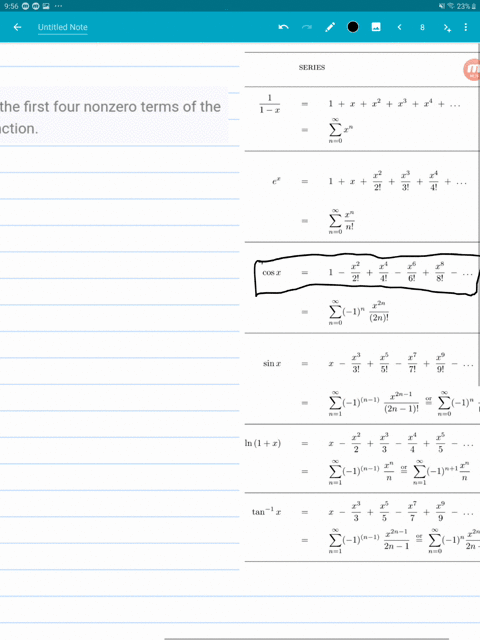 9:56 23%
Untitled Note 8
SERIES
the first four nonzero terms of the
nction.
1/(1−x) = 1 + x + x² + x³ + x⁴ + …
= ∑_{n=0}^{∞} xⁿ
eˣ = 1 + x + x²/2! + x³/3! + x⁴/4! + …
= ∑_{n=0}^{∞} xⁿ/n!
cos x = 1 − x²/2! + x⁴/4! − x⁶/6! + x⁸/8! − …
= ∑_{n=0}^{∞} (−1)ⁿ x²ⁿ/(2n)!
sin x = x − x³/3! + x⁵/5! − x⁷/7! + x⁹/9! − …
= ∑_{n=1}^{∞} (−1)^{(n−1)} x^{2n−1}/(2n−1)! or = ∑_{n=0}^{∞} (−1)ⁿ
ln (1 + x) = x − x²/2 + x³/3 − x⁴/4 + x⁵/5 − …
= ∑_{n=1}^{∞} (−1)^{(n−1)} xⁿ/n or = ∑_{n=1}^{∞} (−1)^{n+1} xⁿ/n
tan⁻¹ x = x − x³/3 + x⁵/5 − x⁷/7 + x⁹/9 − …
= ∑_{n=1}^{∞} (−1)^{(n−1)} x^{2n−1}/(2n−1) or = ∑_{n=0}^{∞} (−1)ⁿ